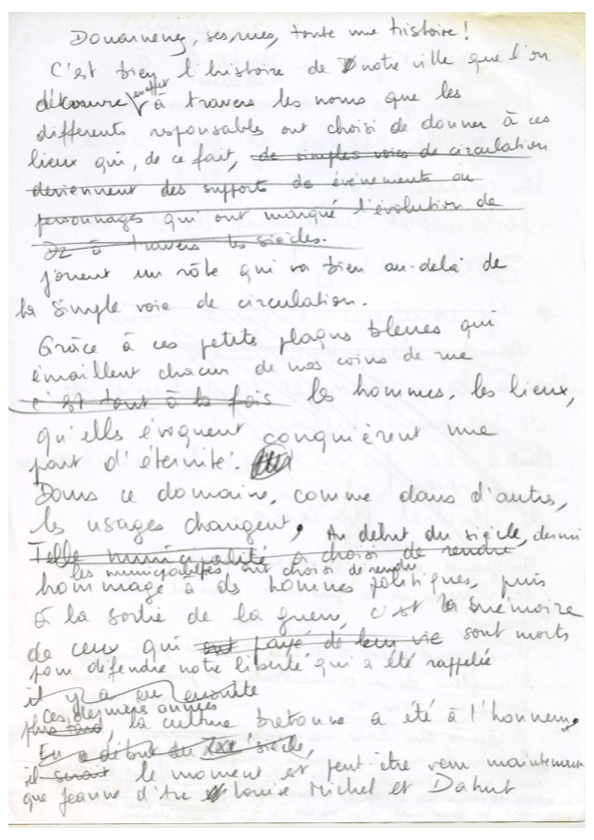 Douarnenez, ses rues, toute une histoire !
C'est bien l'histoire de notre ville que l'on
découvre en effet à travers les noms que les
différents responsables ont choisi de donner à ces
lieux qui, de ce fait, de simples voies de circulation
deviennent des supports de événements ou
personnages qui ont marqué l'évolution de
Dz à travers les siècles.
jouent un rôle qui va bien au-delà de
la simple voie de circulation.
Grâce à ces petites plaques bleues qui
émaillent chacun de nos coins de rue
c'est tout à la fois les hommes, les lieux,
qu'elles évoquent conquièrent une
part d'éternité.
Dans ce domaine, comme dans d'autres,
les usages changent. Au début du siècle, dernier
Telle municipalité a choisi de rendre
les municipalités ont choisi de rendre
hommage à des hommes politiques, puis
à la sortie de la guerre, c'est la mémoire
de ceux qui ont payé de leur vie sont morts
pour défendre notre liberté qui a été rappelée
il y a eu ensuite
ces dernières années
plus tard, la culture bretonne a été à l'honneur.
En ce début du XXIe siècle,
il serait le moment est peut-être venu maintenant
que Jeanne d'Arc Louise Michel et Dahut